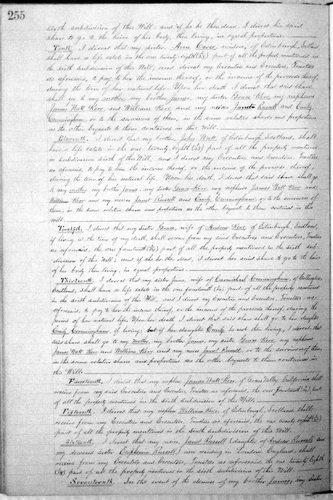 255
sixth subdivision of this Will, and if he be then dead, I direct his said
share to go to the heirs of his body, then living, in equal proportions.
Tenth, I direct that my sister, Ann widow, of Edinburgh, Scotland
shall have a life estate in the one twenty eighth part of all the property mentioned in
the sixth subdivision of this Will, and I direct my Executors and Executrix, Trustees
as aforesaid, to pay to her the income thereof, or the income of the proceeds thereof,
during the term of her natural life. Upon her death I direct that said share
shall go to my mother, my brother James, my sister Grace Kerr, my nephews
James Watt Kerr, and William Kerr and my nieces Janet Russell and Emily
Cunningham, or to the survivors of them, in the same relative shares and proportions
as the other bequests to them contained in this Will.
Eleventh, I direct that my brother John Watt of Edinburgh Scotland, shall
have a life estate in the one twenty eighth part of all the property mentioned
in subdivision sixth of this Will, and I direct my Executors and Executrix, Trustees
as aforesaid, to pay to him the income thereof, or the income of the proceeds thereof
during the term of his natural life. Upon his death, I direct that said share shall go
to my mother, my brother James, my sister Grace Kerr, my nephews James Watt Kerr and
William Kerr and my nieces Janet Russell and Emily Cunningham, or to the survivors of
them, in the same relative shares and proportions as the other bequests to them contained in this
will.
Twelfth, I direct that my sister Grace, wife of Andrew Kerr, of Edinburgh, Scotland,
if living at the time of my death, shall receive from my said Executors and Executrix, Trustees
as aforesaid, the one fourteenth part of all the property mentioned in the sixth sub-
division of this Will; and if she be then dead, I direct her said share to go to the heirs
of her body then living, in equal proportions.
Thirteenth, I direct that my sister Jane, wife of Carmichael Cunningham, of
Scotland, shall have a life estate in the one fourteenth part of all the property mentioned
in the sixth subdivision of this Will, and I direct my Executors and Executrix, Trustees, as
aforesaid, to pay to her the income thereof, or the income of the proceeds thereof, during the
term of her natural life. Upon her death I direct that said share shall go to her daughter
Emily Cunningham if living; but if her daughter Emily be not then living, I direct that
said share shall go to my mother, my brother James, my sister Grace Kerr, my nephews
James Watt Kerr and William Kerr, and my niece Janet Russell, or to the survivors of them
in the same relative shares and proportions as the other bequests to them contained in
this Will.
Fourteenth, I direct that my nephew James Watt Kerr, of Grass Valley California shall
receive from my said Executors and Executrix, Trustees as aforesaid, the one fourteenth part
of all the property mentioned in the sixth subdivision of this Will.
Fifteenth, I direct that my nephew William Kerr, of Edinburgh, Scotland, shall
receive from my Executors and Executrix, Trustees as aforesaid, the one twenty eighth
part of all the property mentioned in the sixth subdivision of this Will.
Sixteenth, I direct that my niece, Janet Russell (daughter of Andrew Russell and
my deceased sister Euphemia Russell) now residing in London, England, shall
receive from my Executors and Executrix, Trustees as aforesaid, the one twenty eighth
part of all the property mentioned in the sixth subdivision of this Will.
Seventeenth, In the event of the demise of my brother James, my sister